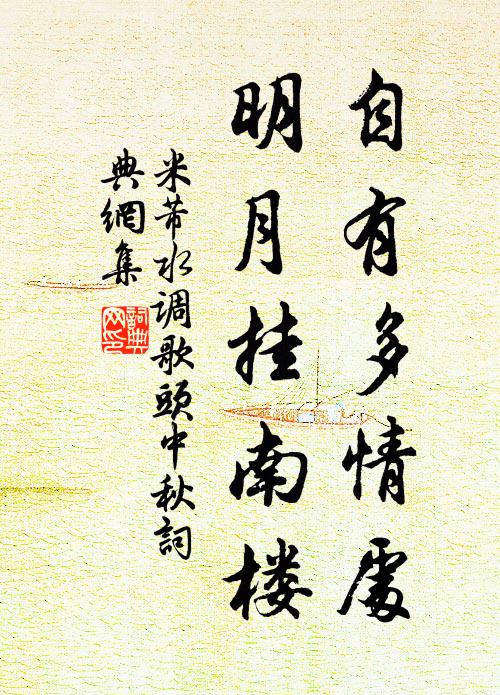 自有多情處
明月挂南楼
米芾水调歌頭中秋詞
典網集
詞典
网印